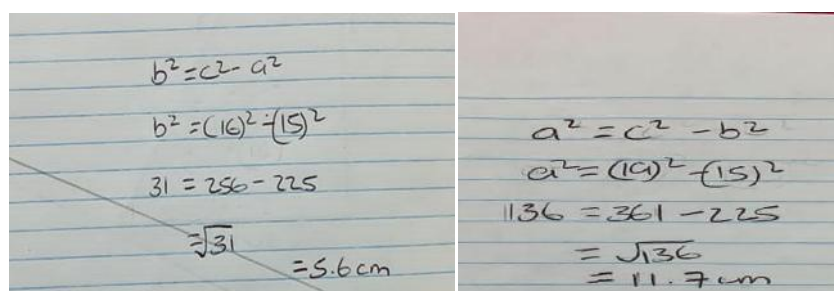 b² = c² - a²
b² = (16)² - (15)²
31 = 256 - 225
= √31
= 5.6 cm
a² = c² - b²
a² = (19)² - (15)²
136 = 361 - 225
= √136
= 11.7 cm